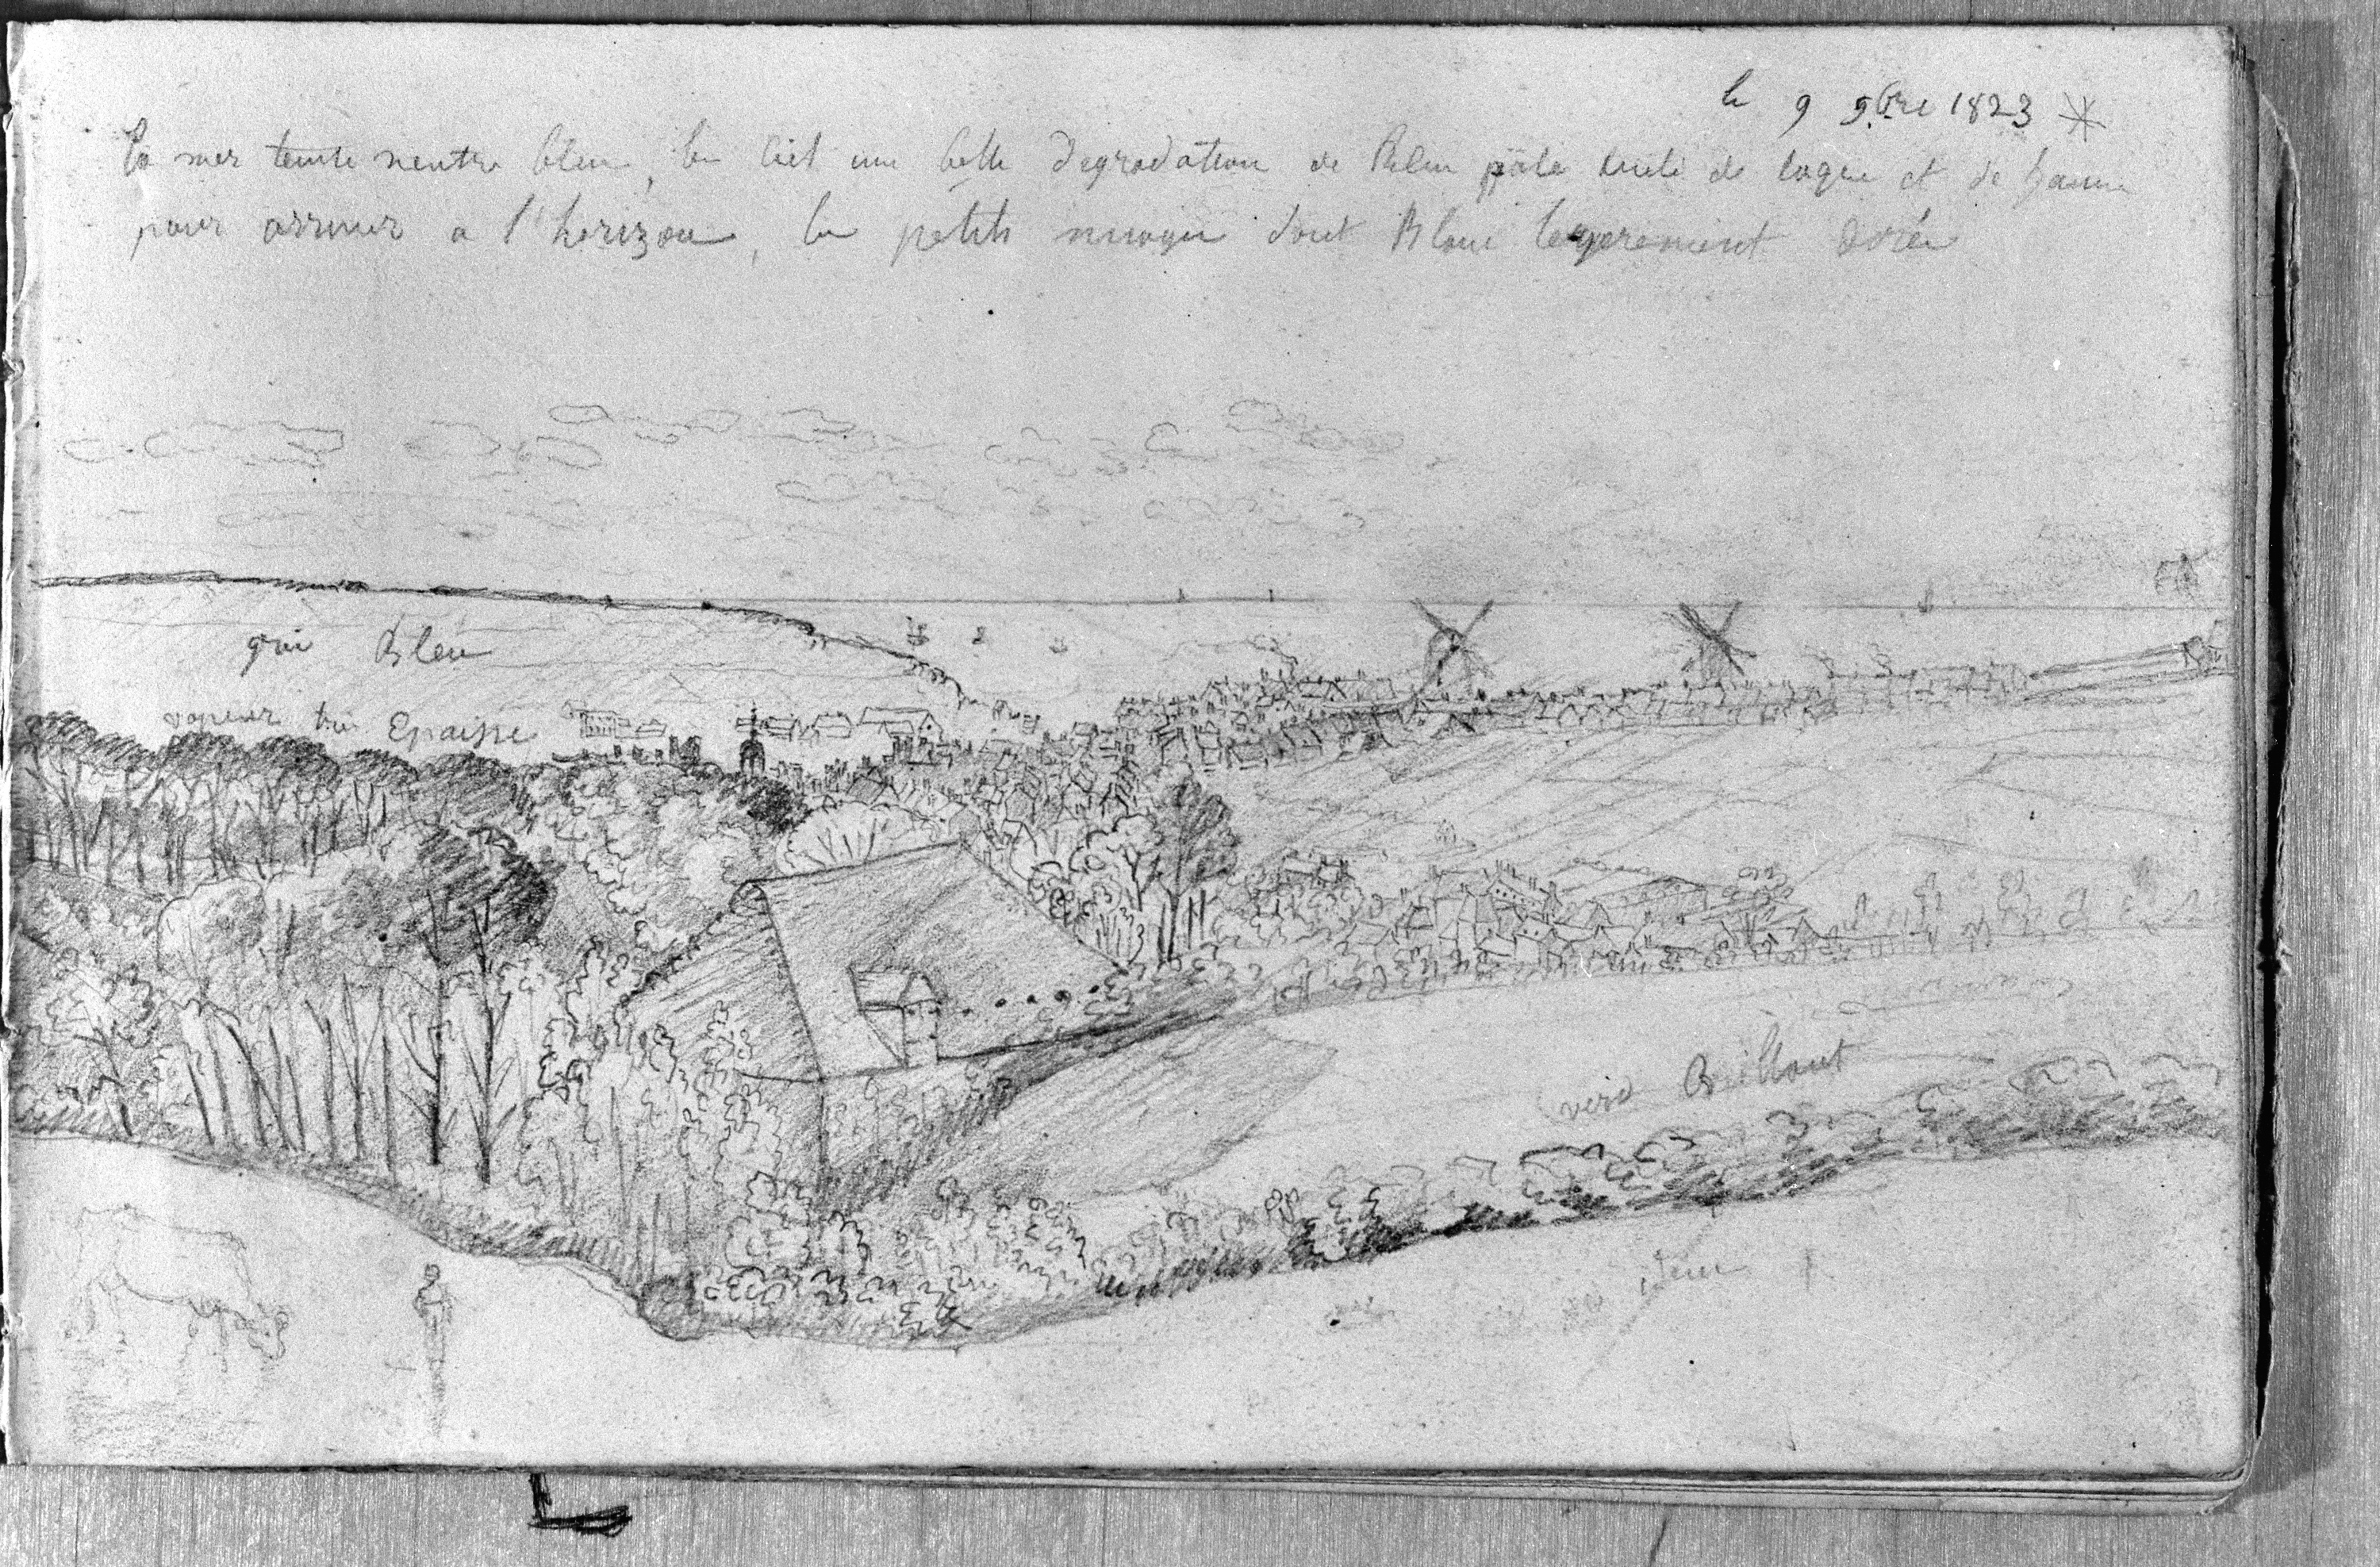 le 9 9.bre 1823
La mer teinte neutre bleu, le Ciel une belle degradation de Bleu pâle de laque et de jaune
pour arriver a l'horizon, les petits nuages sont Blanc legerement dorés
gris Bleu
vapeur très Epaisse
verd Brillant
idem